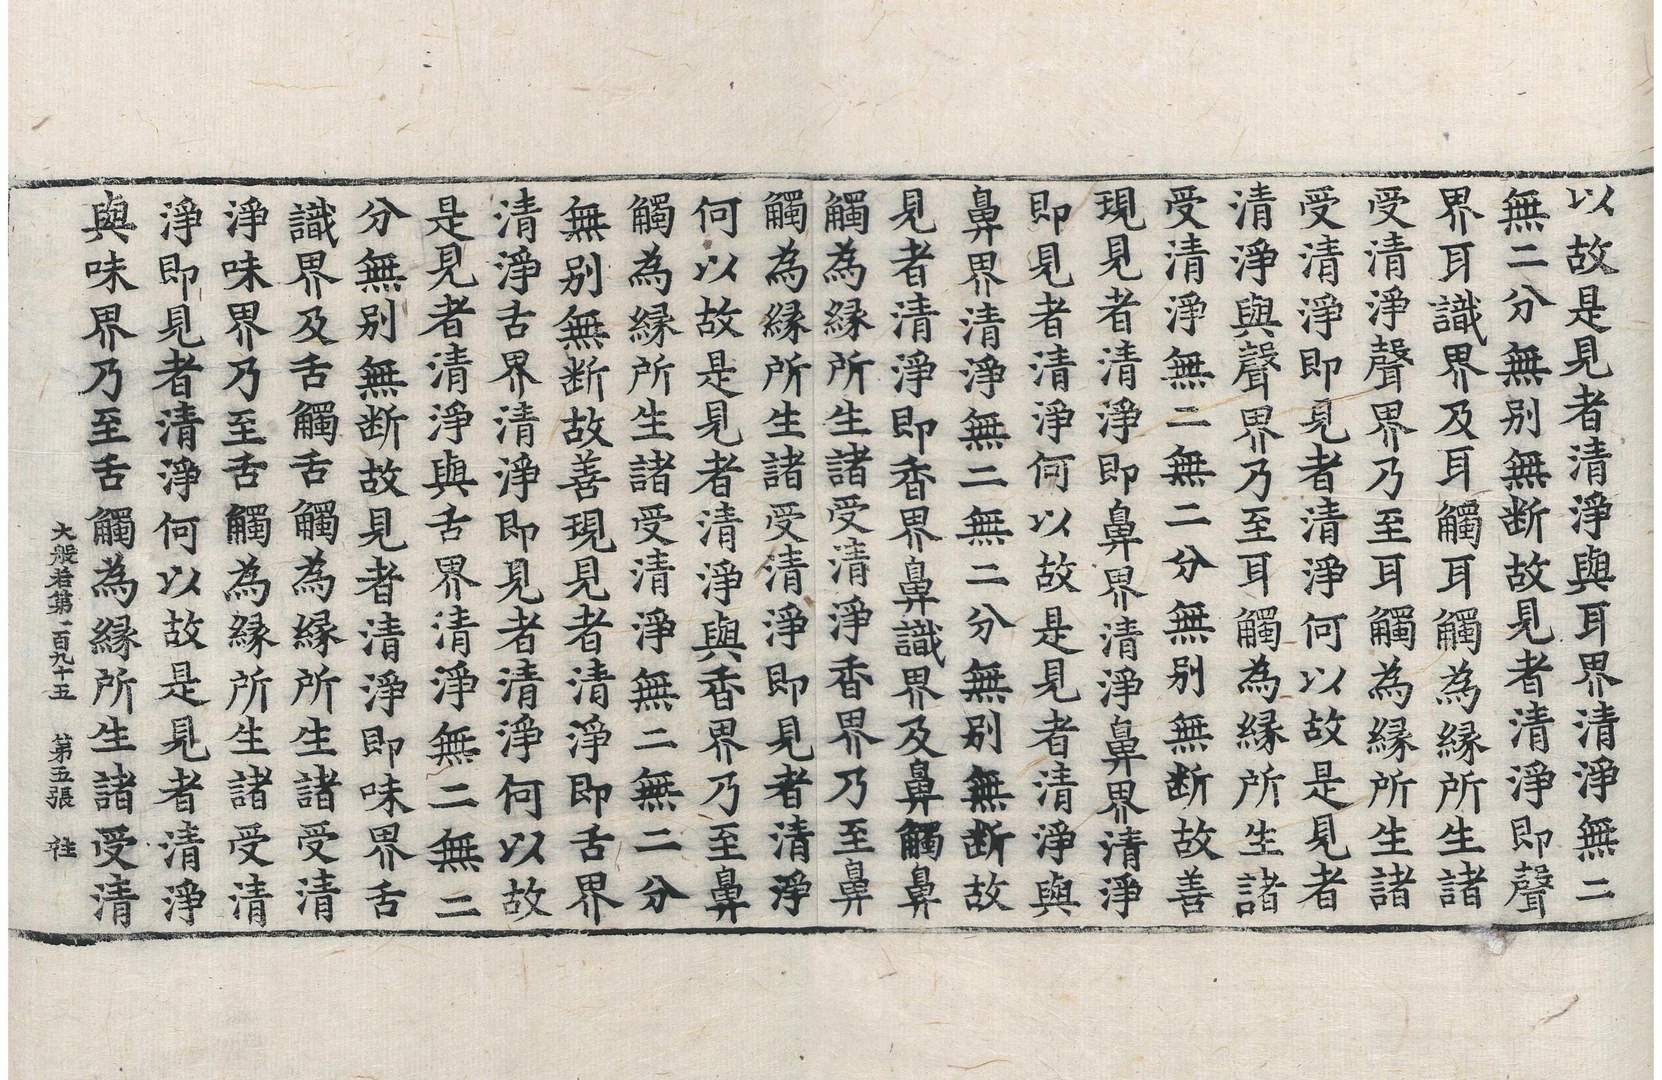 以故是見者清淨與耳界清淨無二
無二分無別無断故見者清淨即聲
界耳識界及耳觸耳觸為緣所生諸
受清淨聲界乃至耳觸為緣所生諸
受清淨即見者清淨何以故是見者
清淨與聲界乃至耳觸為緣所生諸
受清淨無二無二分無別無断故善
現見者清淨即鼻界清淨鼻界清淨
即見者清淨何以故是見者清淨與
鼻界清淨無二無二分無別無断故
見者清淨即香界鼻識界及鼻觸鼻
觸為緣所生諸受清淨香界乃至鼻
觸為緣所生諸受清淨即見者清淨
何以故是見者清淨與香界乃至鼻
觸為緣所生諸受清淨無二無二分
無別無断故善現見者清淨即舌界
清淨舌界清淨即見者清淨何以故
是見者清淨與舌界清淨無二無二
分無別無断故見者清淨即味界舌
識界及舌觸舌觸為緣所生諸受清
淨味界乃至舌觸為緣所生諸受清
淨即見者清淨何以故是見者清淨
與味界乃至舌觸為緣所生諸受清
大般若第一百九十五 第五張